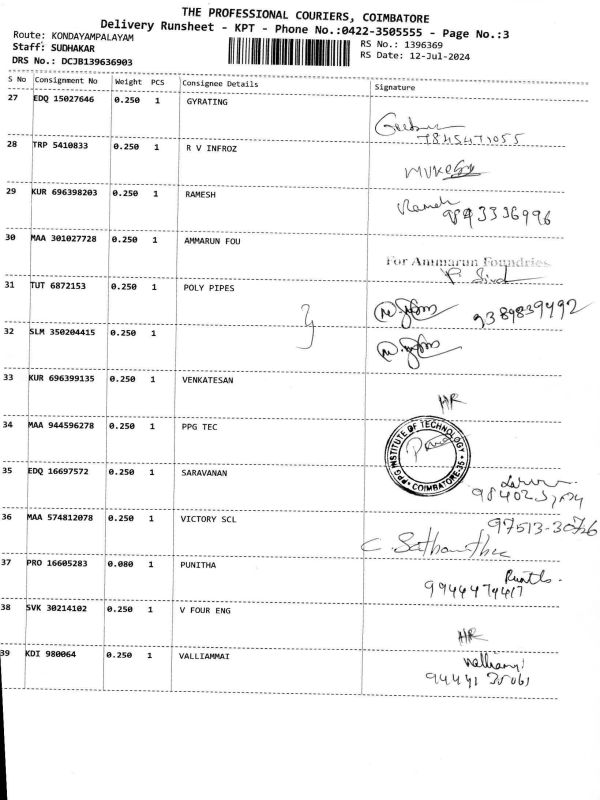 THE PROFESSIONAL COURIERS, COIMBATORE
Delivery Runsheet - KPT - Phone No.:0422-3505555 - Page No.:3
Route: KONDAYAMPALAYAM
Staff: SUDHAKAR
DRS No.: DCJB139636903
RS No.: 1396369
RS Date: 12-Jul-2024
S No Consignment No Weight PCS Consignee Details Signature
27 EDQ 15027646 0.250 1 GYRATING
7845471055
28 TRP 5410833 0.250 1 R V INFROZ
29 KUR 696398203 0.250 1 RAMESH
Ramesh
9843336996
30 MAA 301027728 0.250 1 AMMARUN FOU
For Ammarun Foundries
31 TUT 6872153 0.250 1 POLY PIPES
9389839492
32 SLM 350204415 0.250 1
33 KUR 696399135 0.250 1 VENKATESAN
HR
34 MAA 944596278 0.250 1 PPG TEC
PPG INSTITUTE OF TECHNOLOGY
COIMBATORE-35
35 EDQ 16697572 0.250 1 SARAVANAN
36 MAA 574812078 0.250 1 VICTORY SCL
97513-30726
C. Sathamithra
37 PRO 16605283 0.080 1 PUNITHA
9944479417
38 SVK 30214102 0.250 1 V FOUR ENG
HR
39 KDI 980064 0.250 1 VALLIAMMAI
94441 35061